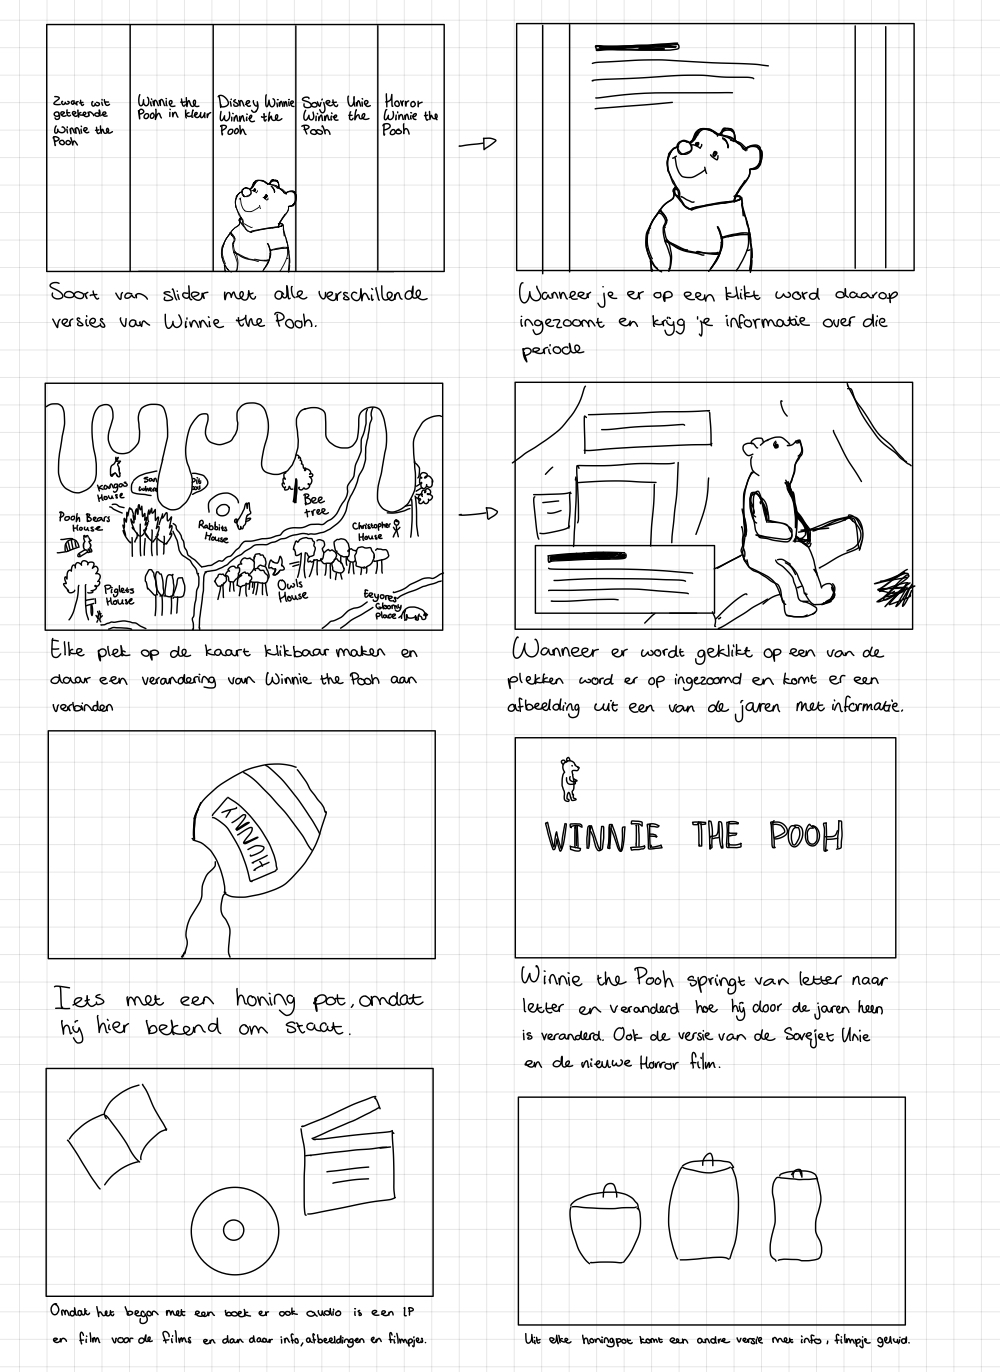 Zwart wit
getekende
Winnie the
Pooh
Winnie the
Pooh in kleur
Disney Winnie
Winnie the
Pooh
Sovjet Unie
Winnie the
Pooh
Horror
Winnie the
Pooh
Soort van slider met alle verschillende
versies van Winnie the Pooh.
Wanneer je er op een klikt word daarop
ingezoomt en krijg je informatie over die
periode
Kangas
House
San
Pit
Pooh Bears
House
Rabbits
House
Bee
tree
Christopher
House
Piglets
House
Owls
House
Eeyores
Gloomy
place
Elke plek op de kaart klikbaar maken en
daar een verandering van Winnie the Pooh aan
verbinden
Wanneer er wordt geklikt op een van de
plekken word er op ingezoomd en komt er een
afbeelding uit een van de jaren met informatie.
HUNNY
Iets met een honing pot, omdat
hij hier bekend om staat.
WINNIE THE POOH
Winnie the Pooh springt van letter naar
letter en veranderd hoe hij door de jaren heen
is veranderd. Ook de versie van de Sovejet Unie
en de nieuwe Horror film.
Omdat het begon met een boek er ook audio is een LP
en film voor de films en dan daar info, afbeeldingen en filmpjes.
Uit elke honingpot komt een andre versie met info, filmpje geluid.